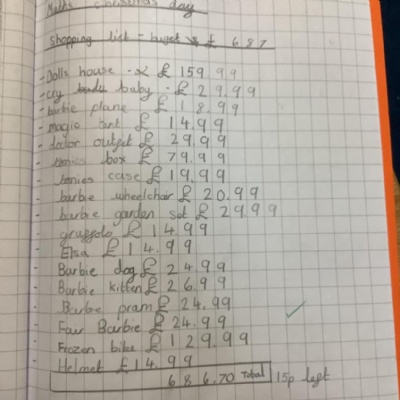 Maths christmas day
Shopping list - buget £ 687
- Dolls house - £ 159.99
- cry baby - £ 29.99
- barbie plane £ 18.99
- magic art £ 14.99
- doctor outget £ 29.99
- tonies box £ 79.99
- tonies case £ 19.99
- barbie wheelchar £ 20.99
- barbie garden set £ 29.99
- gruffolo £ 14.99
- Elsa £ 14.99
- Barbie dog £ 24.99
- Barbie kitten £ 26.99
- Barbie pram £ 24.99
- Four Barbie £ 24.99
- Frozen bike £ 129.99
- Helmet £ 14.99
686.70 Total 15p left